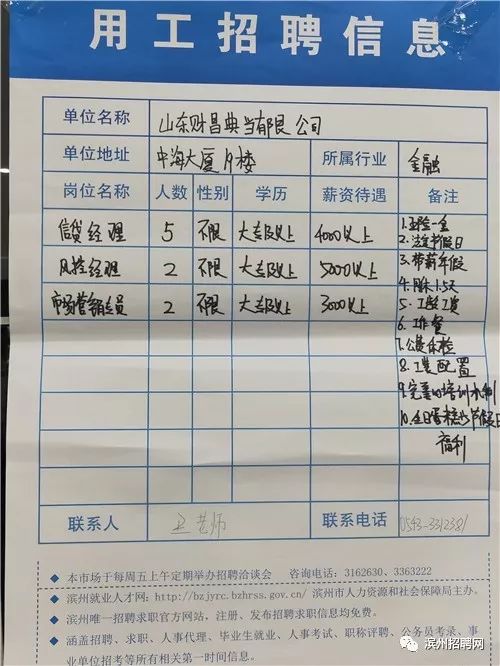 用工招聘信息
单位名称 山东财昌典当有限公司
单位地址 中海大厦 楼 所属行业 金融
岗位名称 人数 性别 学历 薪资待遇 备注
信贷经理 5 不限 大专及以上 4000以上
风控经理 2 不限 大专及以上 5000以上
市场营销专员 2 不限 大专及以上 3000以上
1.五险一金
2.法定节假日
3.带薪年假
4.周休1.5天
5.工龄工资
6.工作餐
7.公费体检
8.工装配置
9.完善的培训机制
10.生日蛋糕 节假日
福利
联系人 老师 联系电话 0543-3312381
◆ 本市场于每周五上午定期举办招聘洽谈会 咨询电话：3162630、3363222
◆ 滨州就业人才网：http://bzjyrc.bzhrss.gov.cn/ 滨州市人力资源和社会保障局主办。
◆ 滨州唯一招聘求职官方网站，注册、发布招聘求职信息均免费。
◆ 涵盖招聘、求职、人事代理、毕业生就业、人事考试、职称评聘、公务员考录、事
业单位招考等所有相关第一时间信息。
滨州招聘网